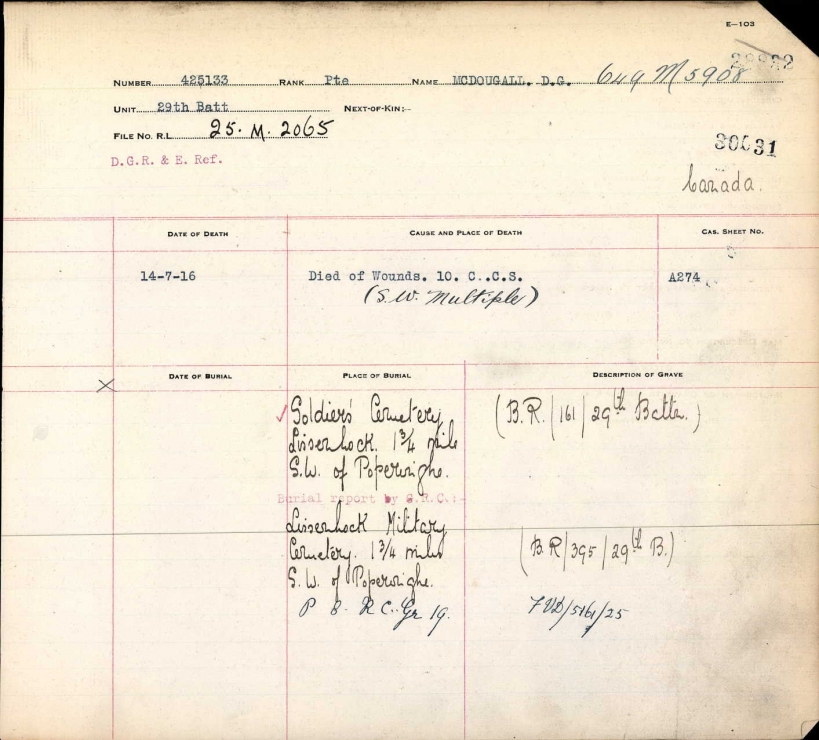 E—103
NUMBER 425133 RANK Pte NAME MCDOUGALL. D.G. 649 M 5908
UNIT 29th Batt NEXT-OF-KIN:-
FILE NO. R.L. 25. M. 2065
30031
D.G.R. & E. Ref.
Canada.
DATE OF DEATH CAUSE AND PLACE OF DEATH CAS. SHEET NO.
14-7-16 Died of Wounds. 10. C..C.S. A274
(S.W. Multiple)
DATE OF BURIAL PLACE OF BURIAL DESCRIPTION OF GRAVE
Soldiers' Cemetery (B.R./161/29th Battn.)
Lissenhock. 1 3/4 mile
S.W. of Poperinghe.
Burial report by G.R.C.:-
Lissenhock Military
Cemetery. 1 3/4 miles (B.R/395/29th B.)
S.W. of Poperinghe.
P 8. R C. Gr 19.